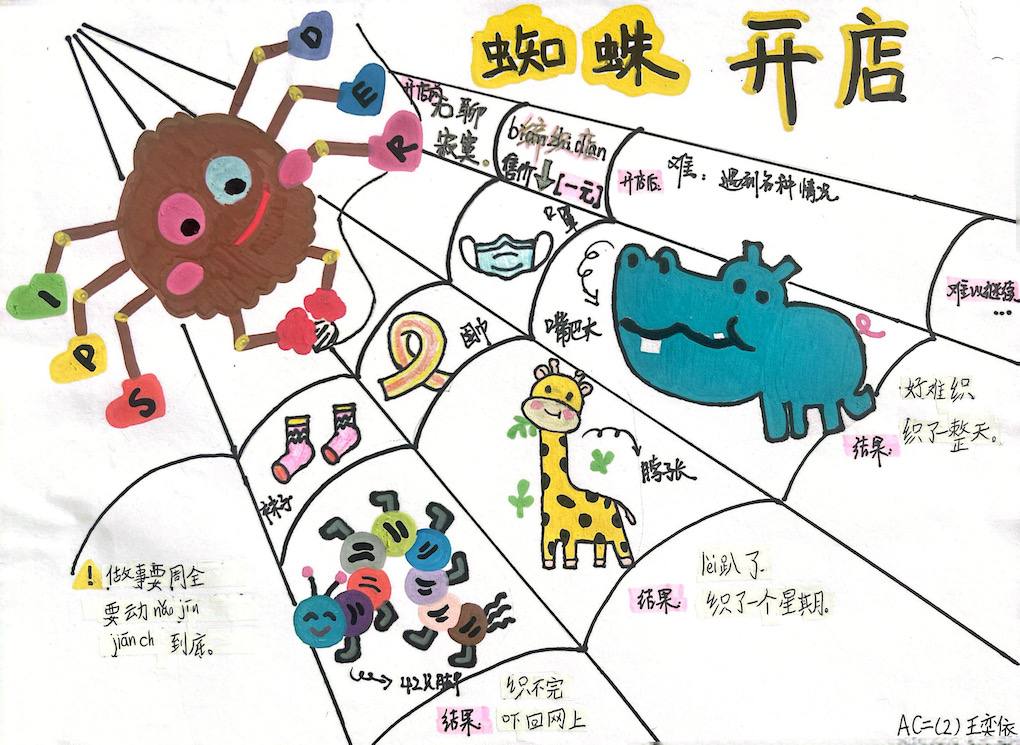 蜘蛛 开店
D
E
R
I
P
S
开店前
无聊
寂寞。
biān织diàn
售价
[一元]
开店后:
难:遇到各种情况
难以继续
...
口罩
嘴巴大
好难织
织了一整天。
结果:
围巾
脖子长
lèi趴了
结果:
织了一个星期。
袜子
42只脚
织不完
结果:
吓回网上
! 做事要周全
要动nǎo jīn
jiān ch 到底。
AC=(2)王奕依